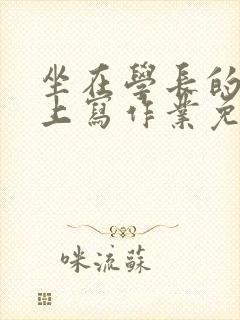 坐在學長的
上寫作業免
咪流蘇